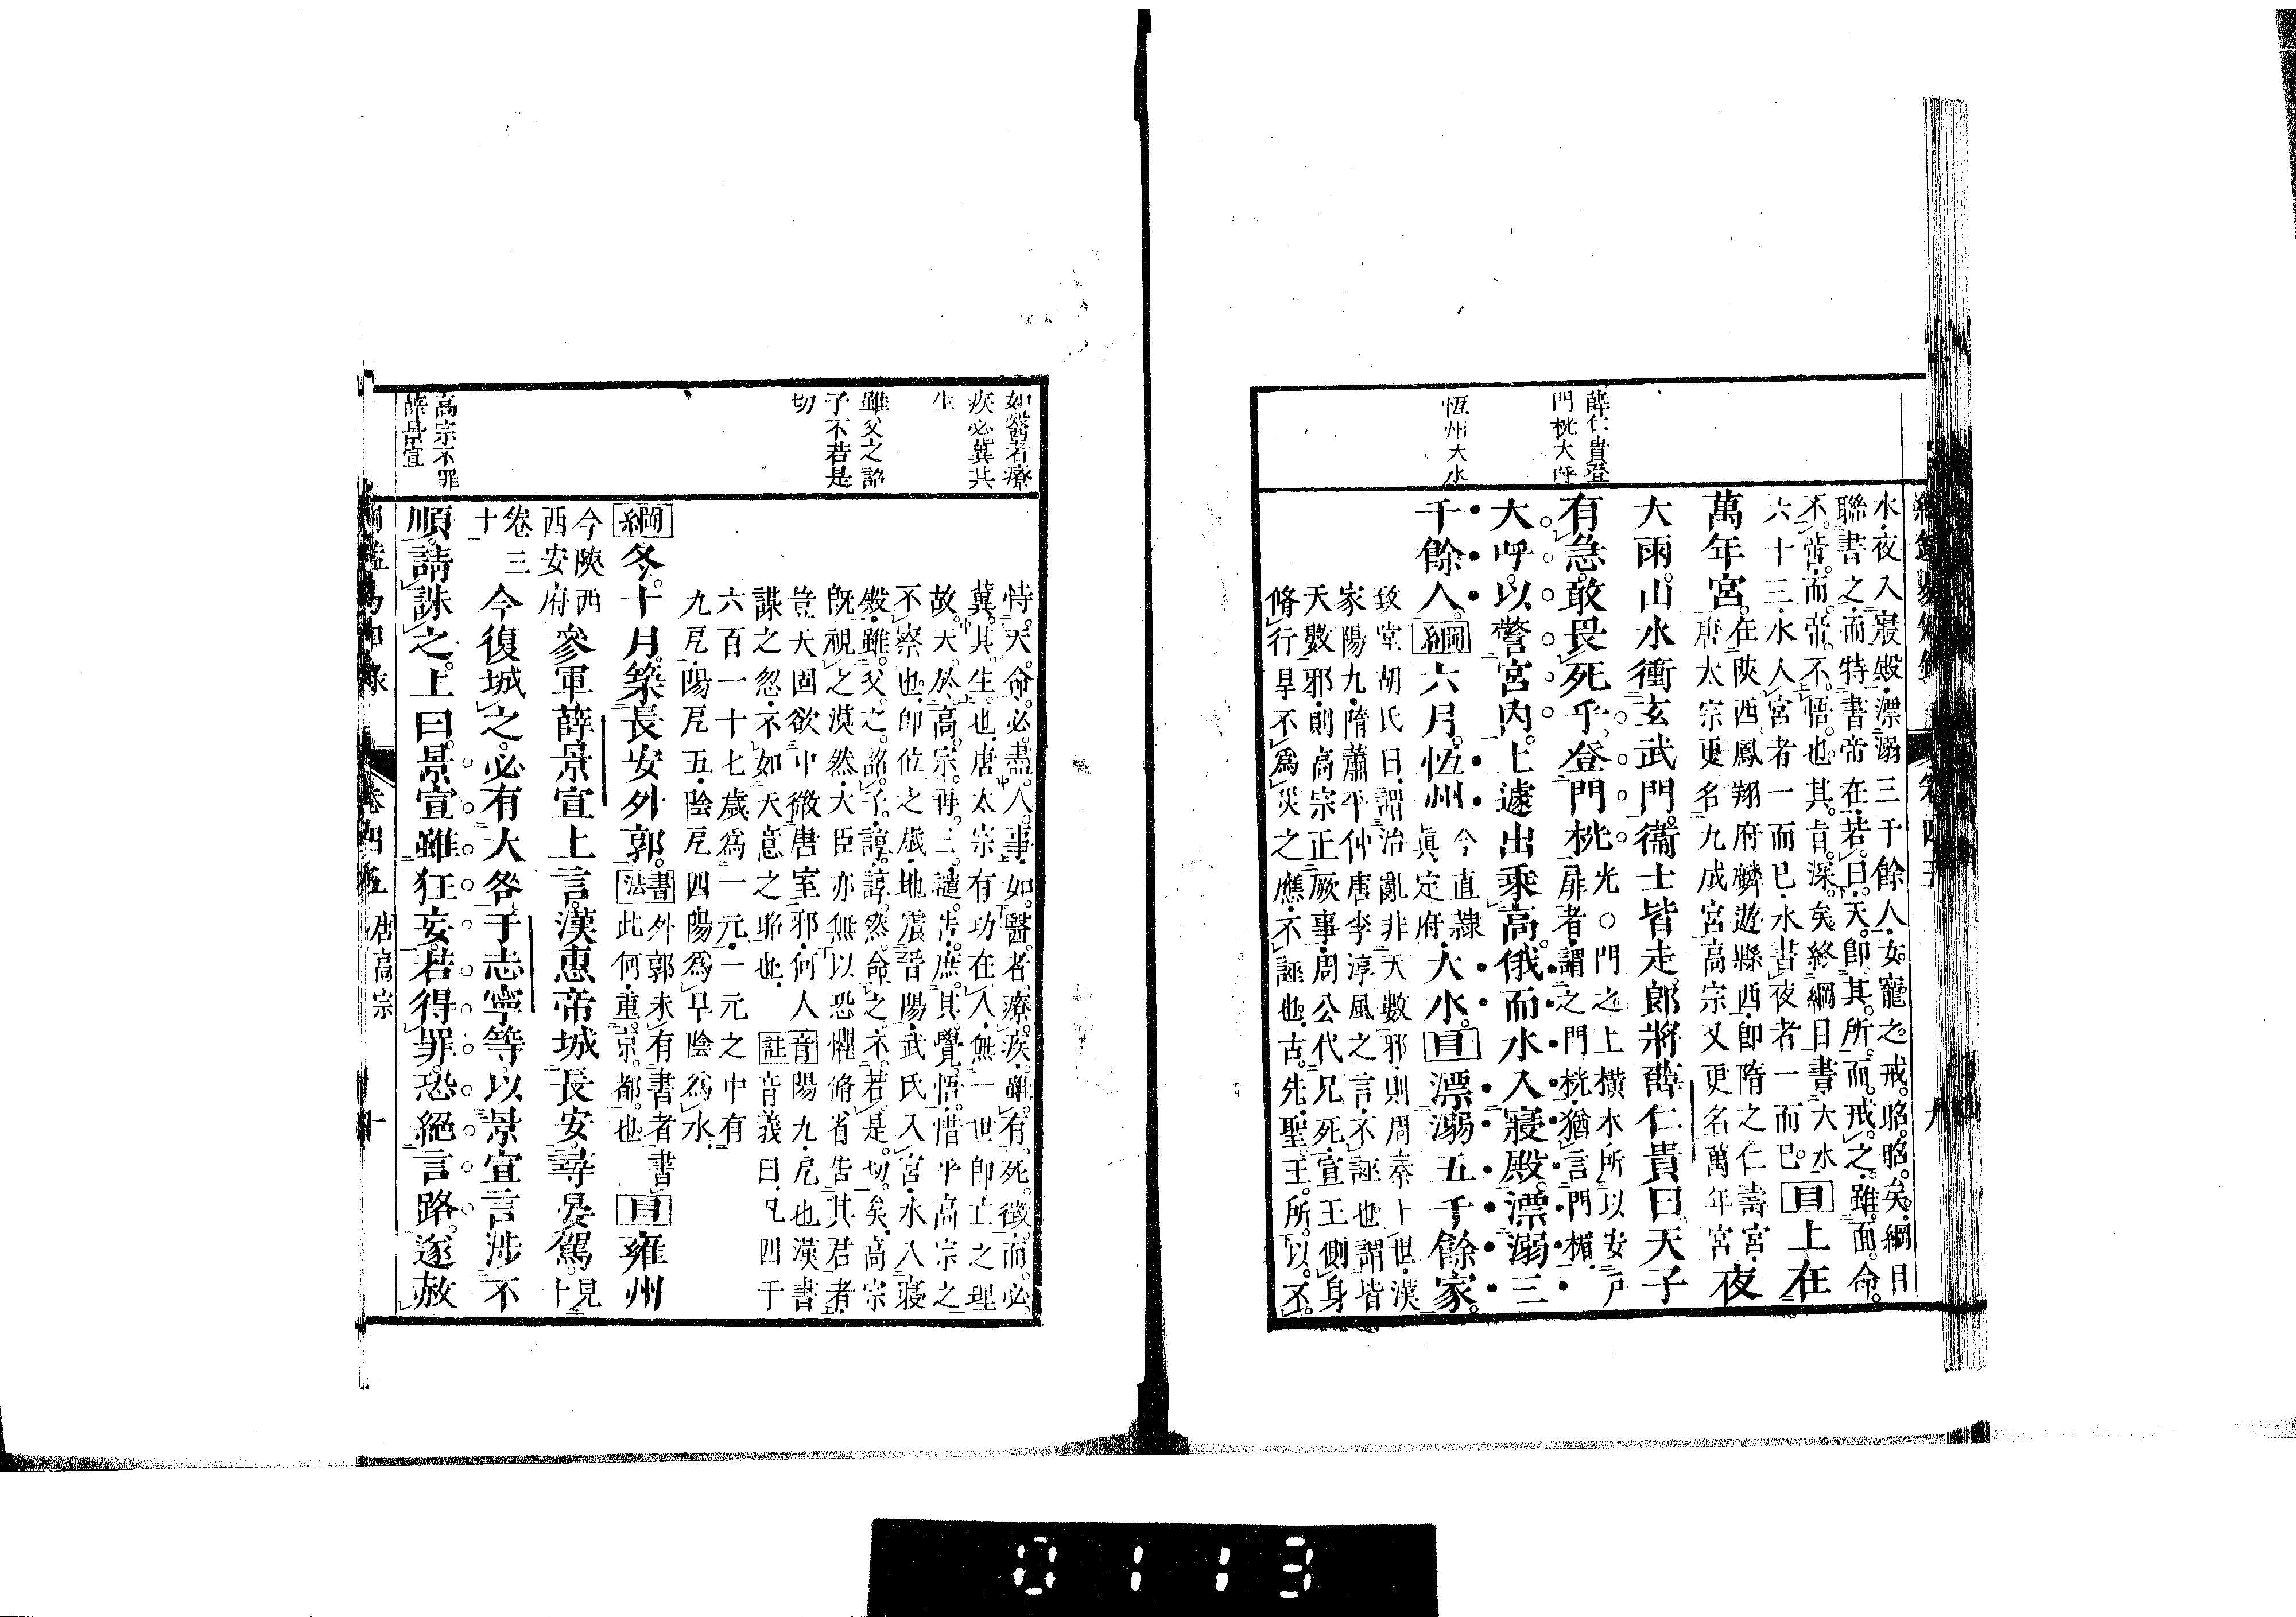 薛仁貴登
門桄大呼
恆州大水
水夜入寢殿漂溺三千餘人女寵之戒昭昭矣綱目
聯書之而特書帝在若曰天卽其所而戒之雖面命
不啻而帝不悟也其旨深矣終綱目書大水
六十三水人宮者一而已水書夜者一而已目上在
萬年宮在陝西鳳翔府麟遊縣西卽隋之仁壽宮
唐太宗更名九成宮高宗又更名萬年宮夜
大雨山水衝玄武門衞士皆走郎將薛仁貴曰天子
有急敢畏死乎登門桄光○門之上橫木所以安戸
扉者謂之門桄猶言門楣
大呼以警宮內上遽出乘高俄而水入寢殿漂溺三
千餘人綱六月恆州今直隸
眞定府大水目漂溺五千餘家
致堂胡氏曰謂治亂非天數邪則周秦卜世漢
家陽九隋蕭平仲唐李淳風之言不誣也謂皆
天數邪則高宗正厥事周公代兄死宣王側身
脩行旱不爲災之應不誣也古先聖王所以丕
如醫者療
疾必冀其
生
雖父之詔
子不若是
切
高宗不罪
薛景宣
恃天命必盡人事如醫者療疾雖有死徵而必
冀其生也唐太宗有功在人無一世卽亡之理
故天於高宗再三譴告庶其覺悟惜乎高宗之
不察也卽位之歲地震晉陽武氏入宮水入寢
殿雖父之詔子諄諄然命之不若是切矣高宗
旣視之漠然大臣亦無以恐懼脩省告其君者
豈大固欲中微唐室邪何人
謀之忽不如天意之昭也音註陽九戹也漢書
音義曰凡四千
六百一十七歲爲一元一元之中有
九戹陽戹五陰戹四陽爲旱陰爲水
綱冬十月築長安外郭書法外郭未有書者書
此何重京都也目雍州
今陝西
西安府參軍薛景宣上言漢惠帝城長安尋晏駕見
十
卷三
十今復城之必有大咎于志寧等以景宣言涉不
順請誅之上曰景宣雖狂妄若得罪恐絕言路遂赦
卷四五 唐高宗 十
0113